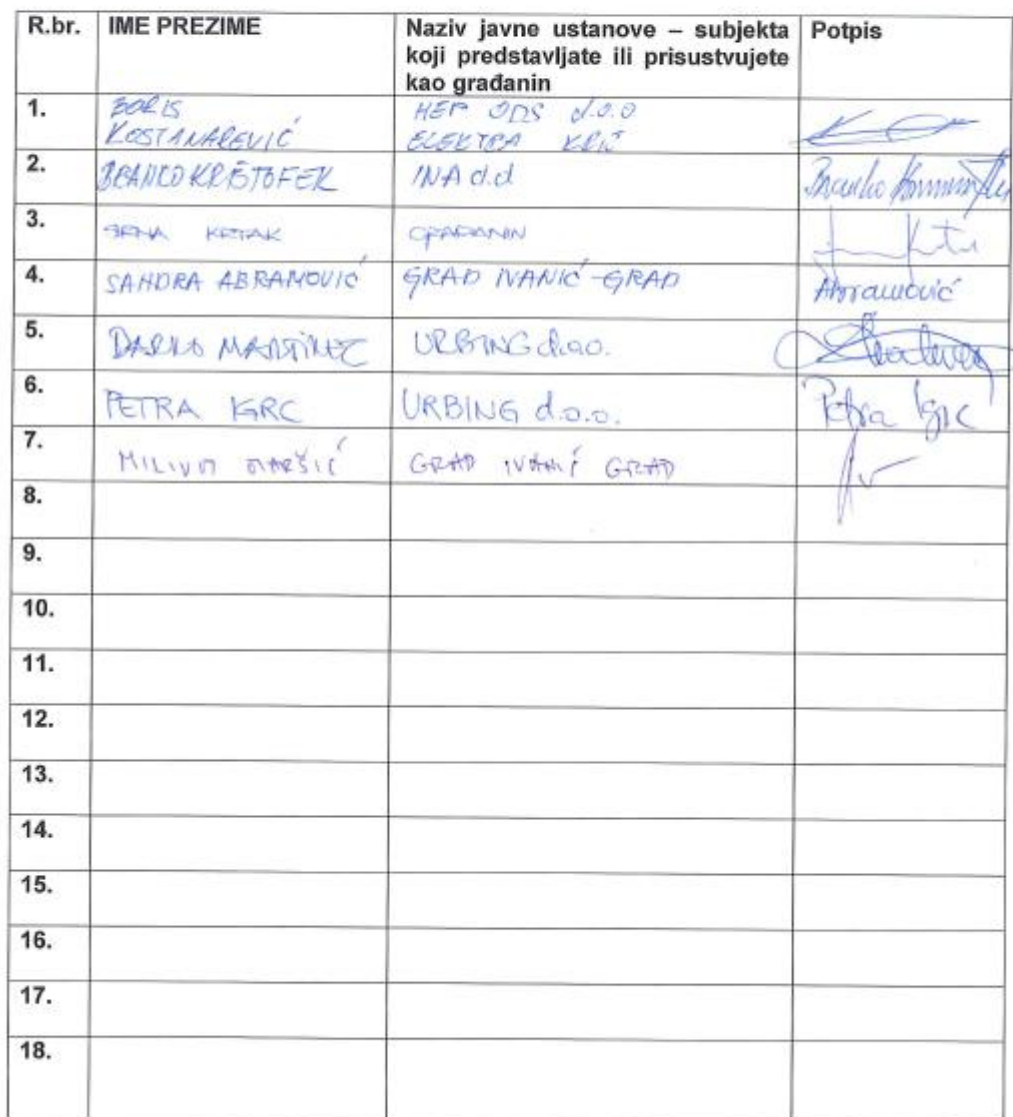 R.br. IME PREZIME Naziv javne ustanove – subjekta koji predstavljate ili prisustvujete kao građanin Potpis
1. BORIS KOSTANAREVIĆ HEP ODS d.o.o ELEKTRA KRIŽ
2. BRANKO KRIŠTOFEK INA d.d
3. KRTAK GRAĐANIN
4. SANDRA ABRAMOVIĆ GRAD IVANIĆ-GRAD Abramović
5. DARKO MARTINEC URBING d.o.o.
6. PETRA IGRC URBING d.o.o. Petra Igrc
7. MILIVOJ MARŠIĆ GRAD IVANIĆ GRAD
8.
9.
10.
11.
12.
13.
14.
15.
16.
17.
18.